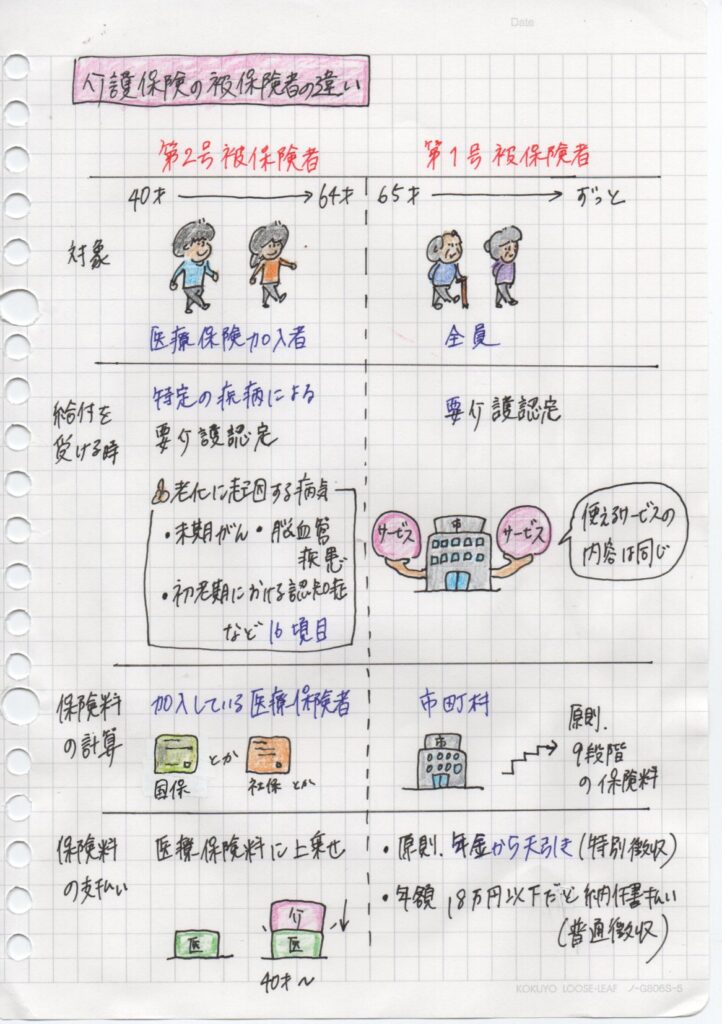 Date
介護保険の被保険者の違い
第2号被保険者
第1号被保険者
40才 → 64才
65才 → ずっと
対象
医療保険加入者
全員
給付を
受ける時
特定の疾病による
要介護認定
老化に起因する病気
・末期がん・脳血管
疾患
・初老期における認知症
など16項目
要介護認定
サービス
市
サービス
使えるサービスの
内容は同じ
保険料
の計算
加入している医療保険者
国保
とか
社保
とか
市町村
市
原則.
9段階
の保険料
保険料
の支払い
医療保険料に上乗せ
医
介
医
40才~
・原則.年金から天引き(特別徴収)
・年額 18万円以下だと納付書払い
(普通徴収)
KOKUYO LOOSE-LEAF ノ-G806S-5